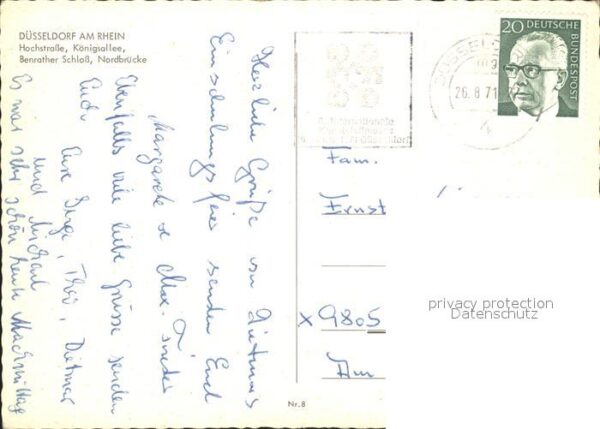 DÜSSELDORF AM RHEIN
Hochstraße, Königsallee,
Benrather Schloß, Nordbrücke
Herzliche Grüße von Dietmars
Einschulungsfeier senden Euch
Margarete u Max.
Ebenfalls viele liebe Grüsse senden
Euch
Eure Helga, Theo, Dietmar
und Michael
Es war sehr schön heute Nachmittag
20 DEUTSCHE
BUNDESPOST
26.8.71
Fam.
Ernst
x 9805
Am
privacy protection
Datenschutz
Nr. 8